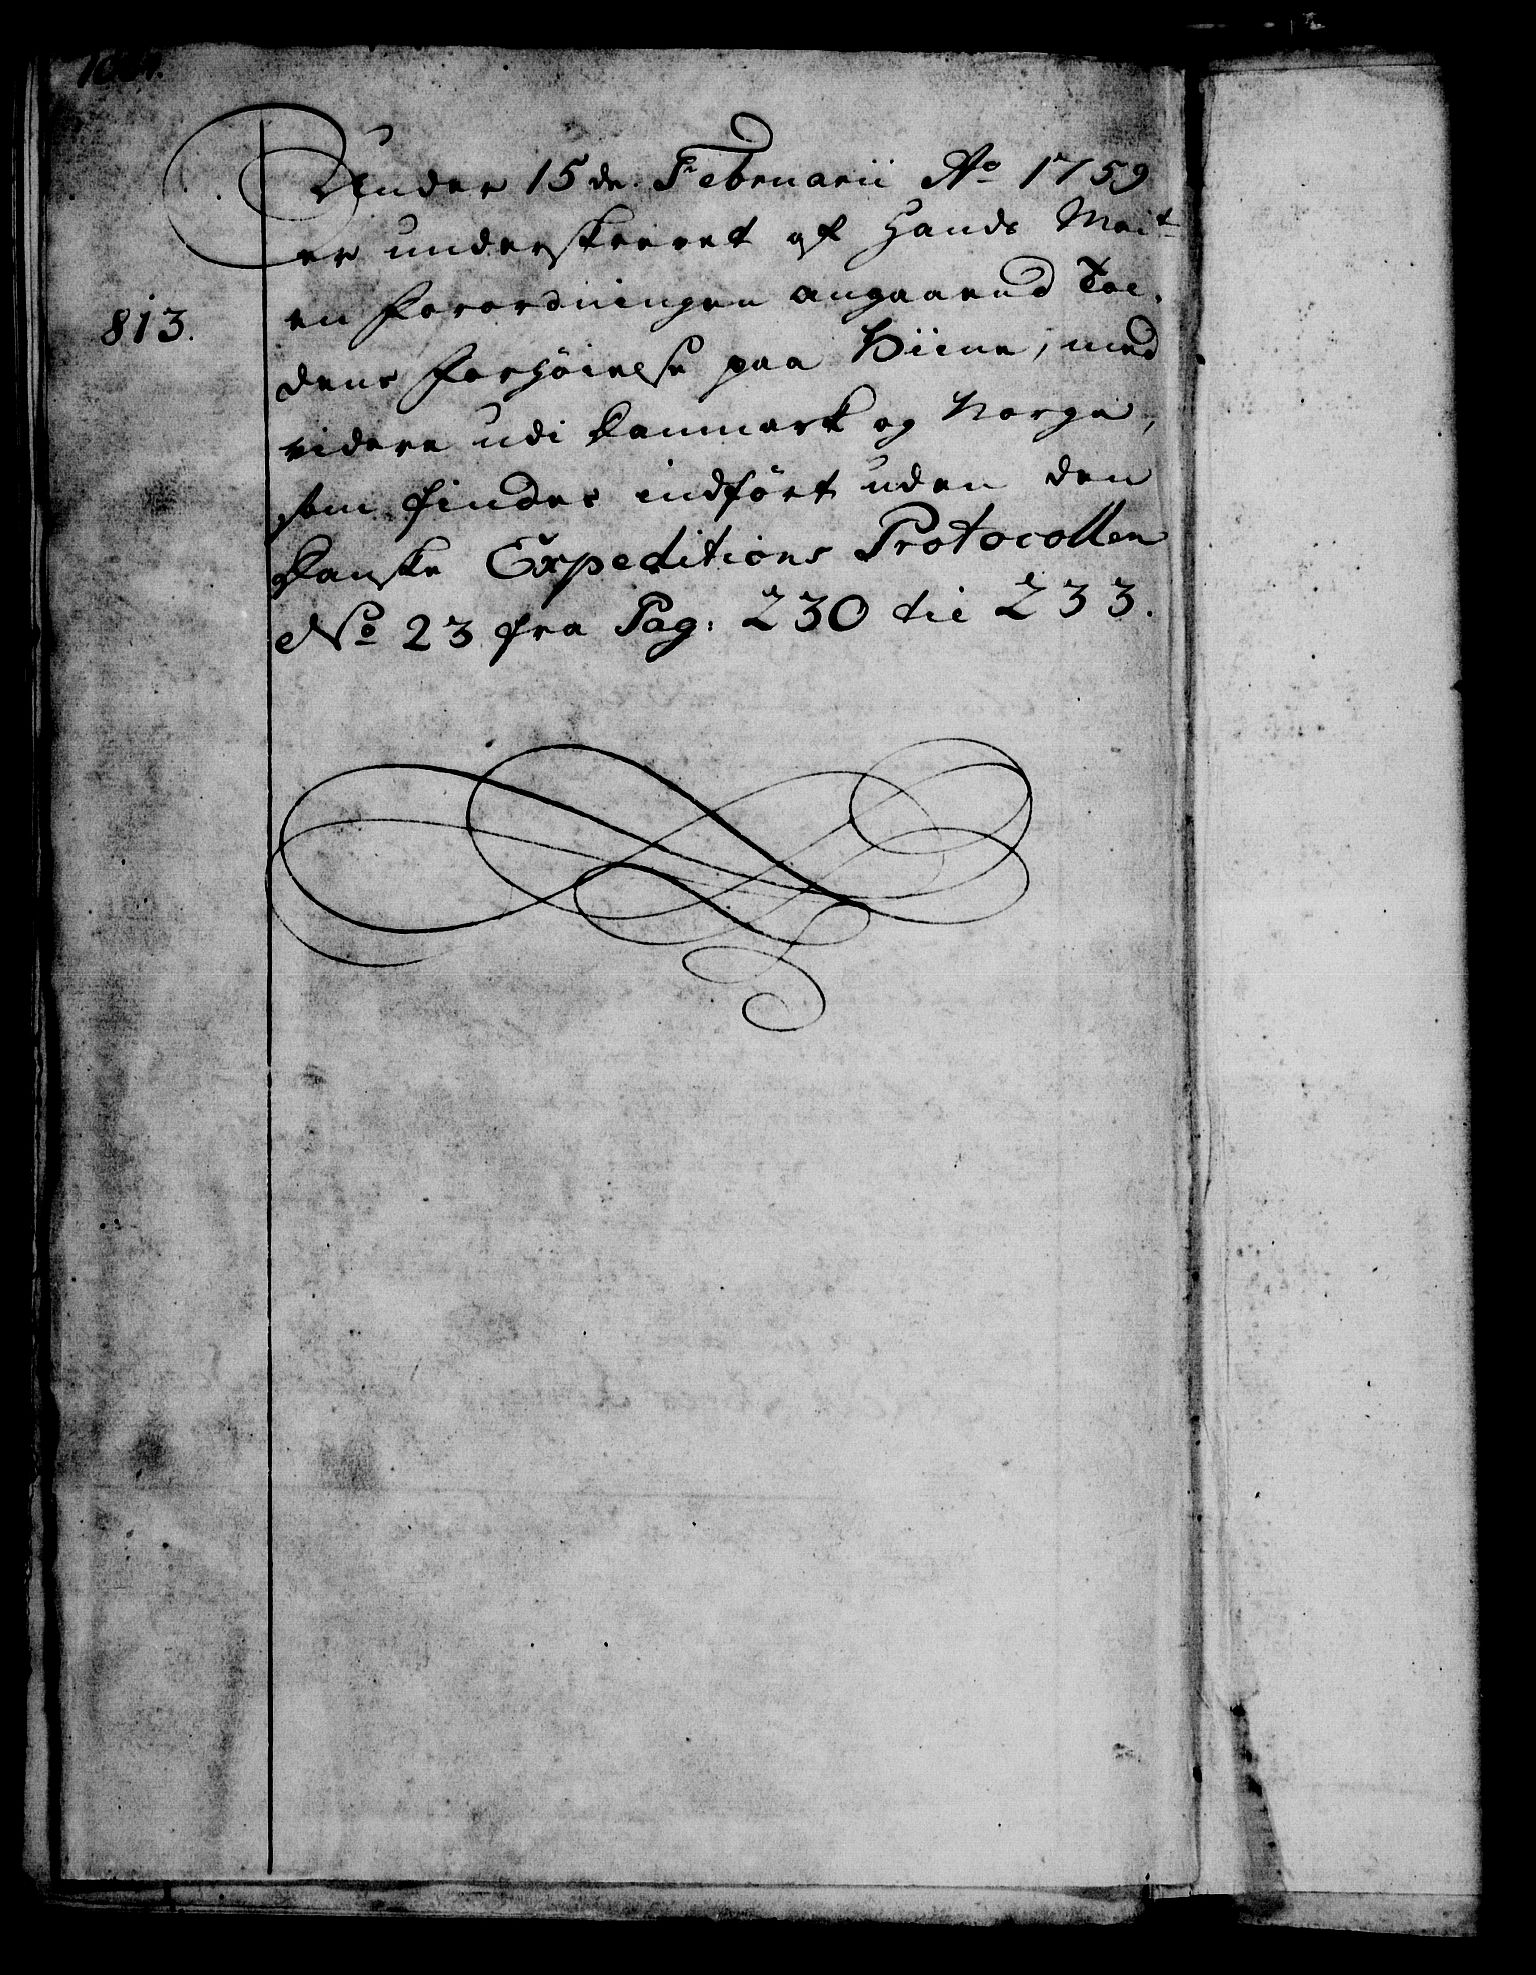 Under 15de. Februarii Ao 1759
er underskrevet af Hands Mait
en Forordningen angaaende Tol,
dens Forhöielse paa Viine, med
videre udi Danmark og Norge,
som findes indfört uden den
Danske Expeditions Protocollen
813.
No 23 fra Pag: 230 til 233.